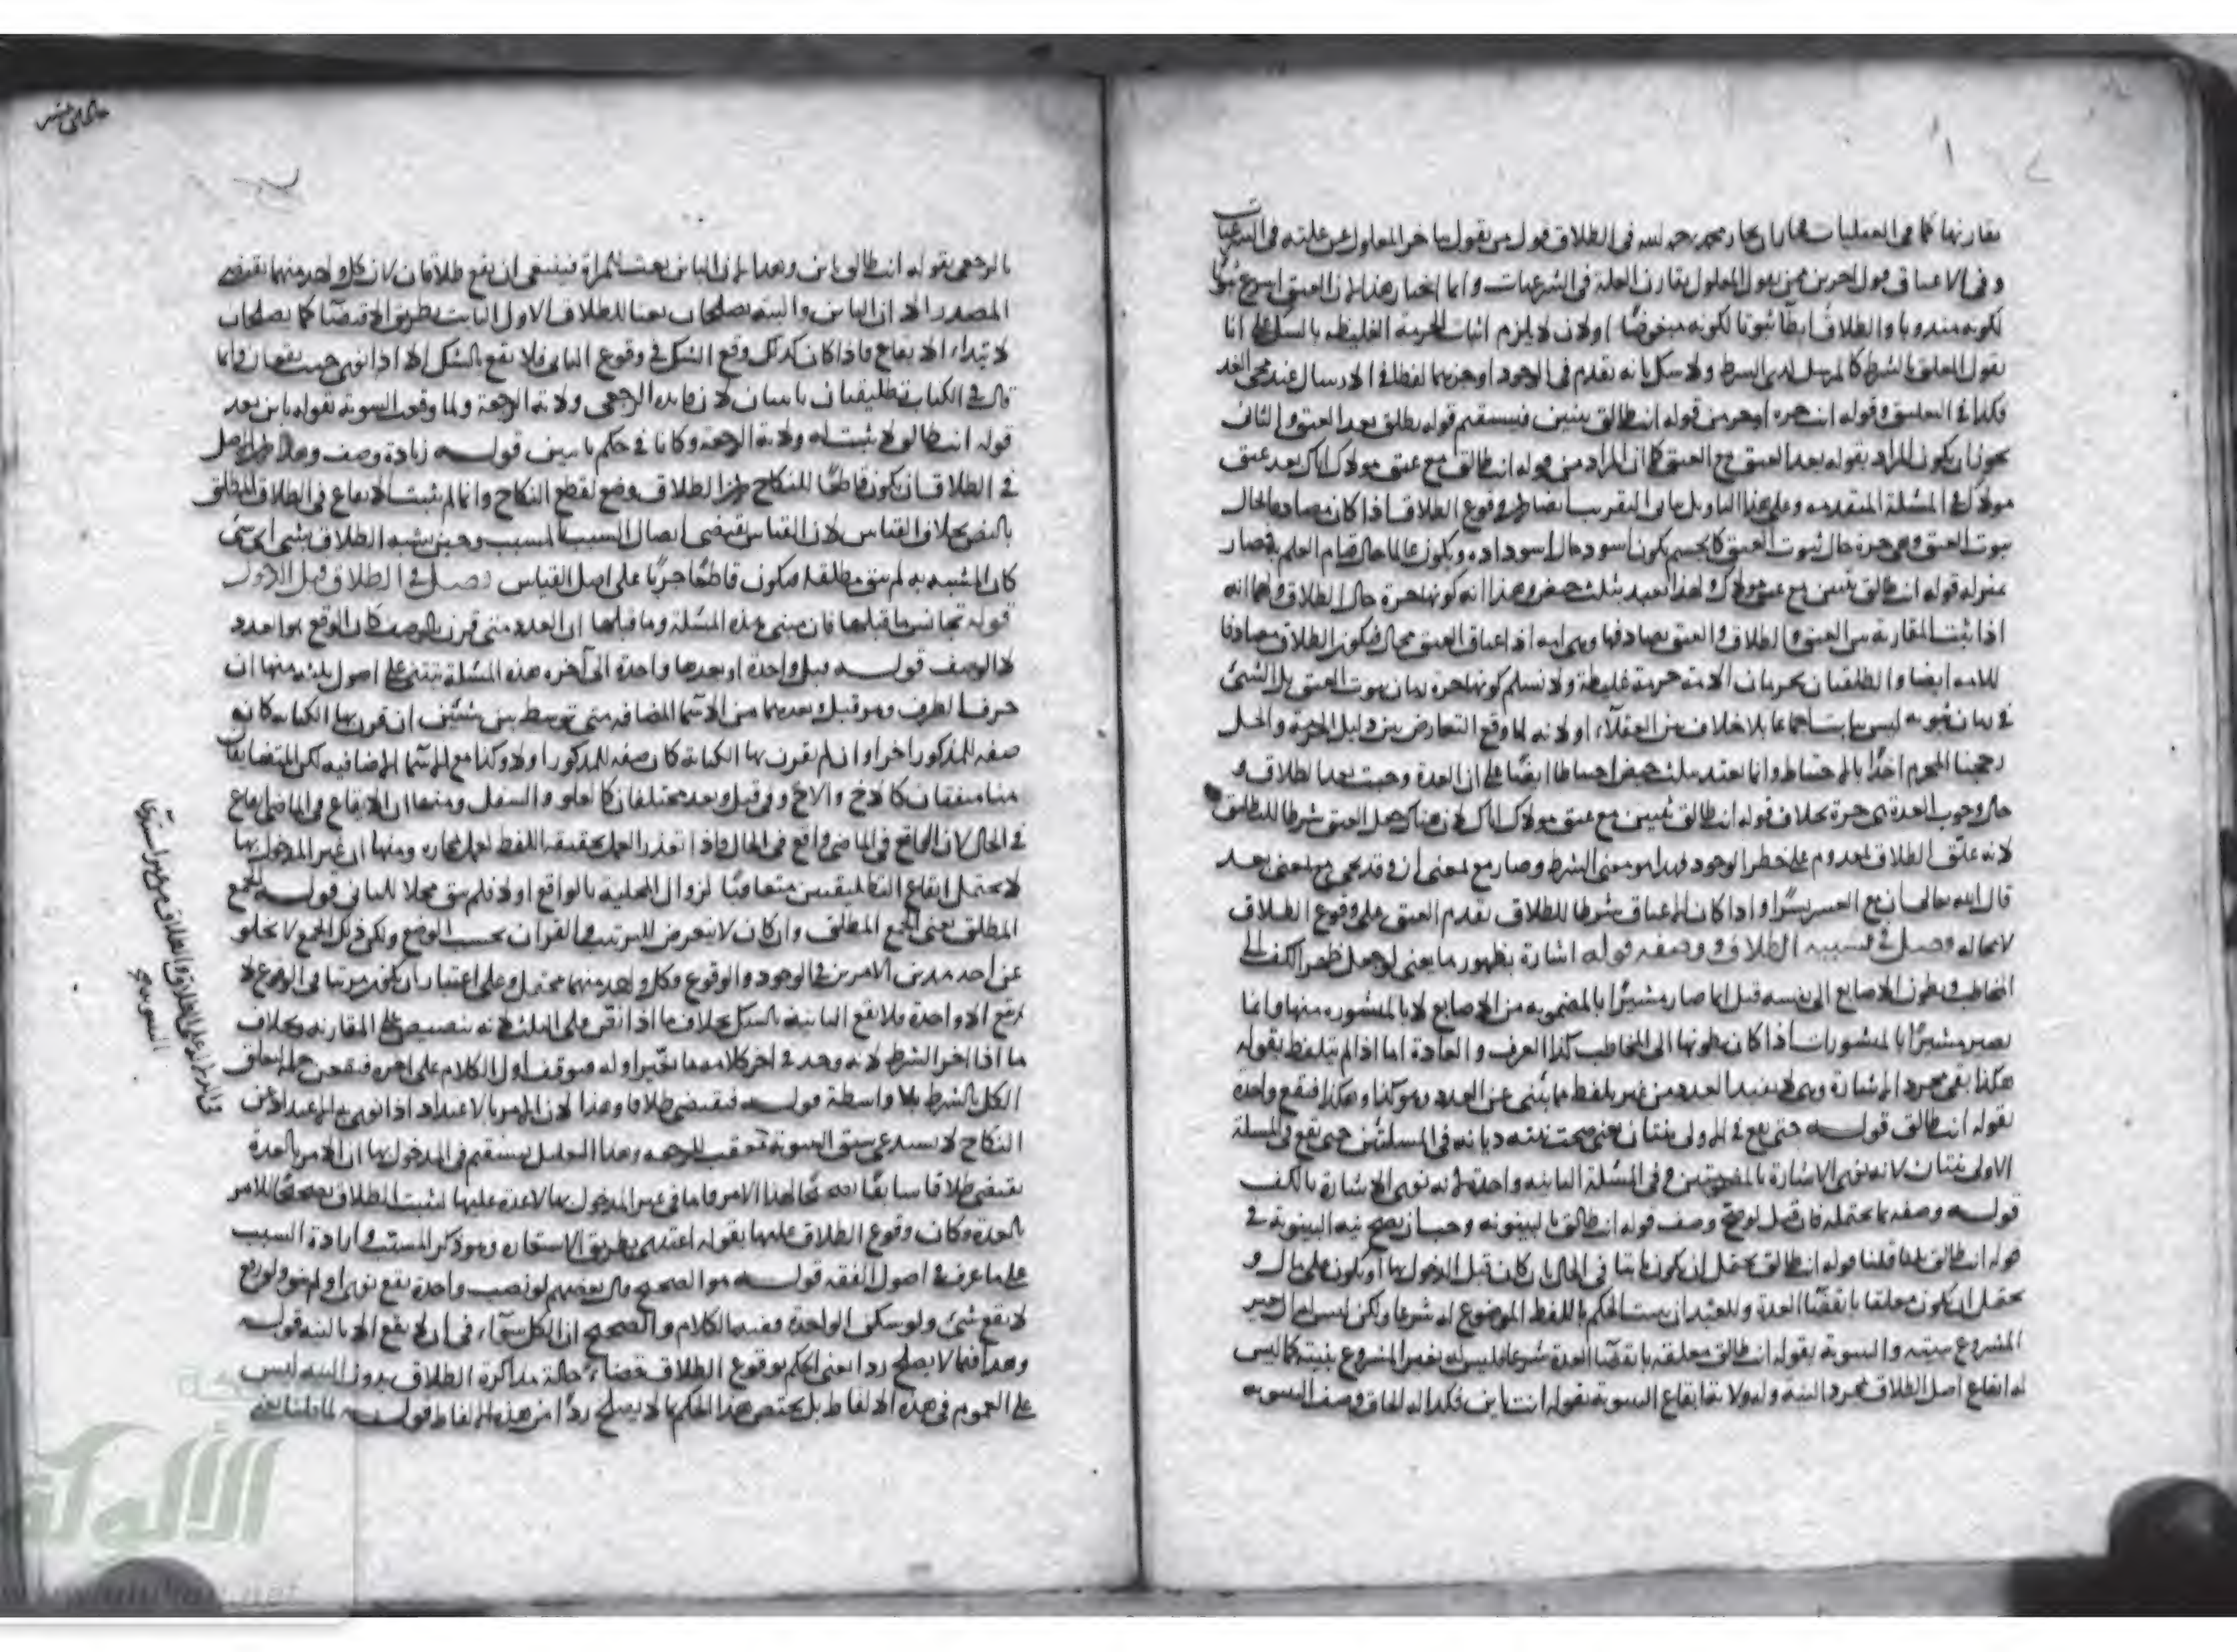 يقارنها كما في العقليات محمد رحمه الله في الطلاق قول من يقول بتأخر المعلول عن علته في الشرعيات
وفي الاعتاق قول اخرين ممن يقول المعلول يقارن العلة في الشرعيات وانما اختار هذا لان العتق اسرع ثبوتا
لكونه مندوبا والطلاق ابطأ ثبوتا لكونه مبغوضا اولان لا يلزم اثبات الحرمة الغليظة بالشك على انا
نقول المعلق بالشرط كالمرسل لدى الشرط ولا شك بانه تقدم في الوجود اوجزهما لفظا في الارسال عند محمد
فكذا في التعليق وقوله انت حرة اوجز من قوله انت طالق ثنتين فيستقيم قوله يطلق بعد العتق والثاني
يجوز ان يكون المراد بقوله بعد العتق مع العتق كما ان المراد من قوله انت طالق مع عتق مولاك اياك بعد عتق
مولاك في المسئلة المتقدمة وعلى هذا التاويل وقوع الطلاق اذا كان مصادفا لحال
ثبوت العتق وهي حرة حال ثبوت العتق كالجسم يكون اسود حال سواده ويكون عالما حال قيام العلم به فصار
بمنزلة قوله انت طالق ثنتين مع عتق مولاك ولهذا تعتد بثلث حيض وهذا اية كونها حرة حال الطلاق ولهما انه
اذا ثبت المقارنة بين العتق والطلاق والعتق يصادفها وهي امة اذ اعتاق العتق محال فيكون الطلاق مصادفا
للامة ايضا والطلقتان يحرمان الامة حرمة غليظة ولا نسلم كونها حرة زمان ثبوت العتق بل الشئ
في زمان ثبوته ليس بثابت بلا خلاف بين العقلاء اولانه لما وقع التعارض بين دليل الحرمة والحل
رجحنا المحرم اخذا بالاحتياط وانما تعتد بثلث حيض احتياطا ايضا على ان العدة وجبت بعد الطلاق و
حال وجوب العدة هي حرة بخلاف قوله انت طالق ثنتين مع عتق مولاك اياك لان هناك جعل العتق شرطا للتطليق
لانه علق الطلاق بمعدوم على خطر الوجود فهذا هو معنى الشرط وصار مع بمعنى ان وقد يجئ مع بمعنى بعد
قال الله تعالى ان مع العسر يسرا واذا كان الاعتاق شرطا للطلاق تقدم العتق على وقوع الطلاق
لا محالة فصل في تشبيه الطلاق ووصفه قوله اشارة بظهور ما يعني لو جعل ظهر الكف الى
المخاطب وبطون الاصابع الى نفسه قبل انما صار مشيرا بالمضمومة من الاصابع لا بالمنشورة منها وانما
يصير مشيرا بالمنشورات اذا كان بطونها الى المخاطب كذا العرف والعادة اما اذا لم يتلفظ بقوله
هكذا بقي مجرد الاشارة وهي لا يفيد العدد من غير تلفظ ما ينبئ عن العدد وهو كذا وهكذا فتقع واحدة
بقوله انت طالق قوله حتى يقع في الاولى ثنتان يعني صحت نيته ديانة في المسئلتين حتى يقع في المسئلة
الاولى ثنتان لانه نوى الاشارة بالمضمومتين وفي المسئلة الثانية واحدة لانه نوى الاشارة بالكف
قوله وصفه بما يحتمله فان قيل لو صح وصف قوله انت طالق بالبينونة وجب ان يصح نية البينونة في
قوله انت طالق قلنا قوله انت طالق يحتمل ان يكون بائنا في الحال بان كان قبل الدخول بها او يكون على مال و
يحتمل ان يكون معلقا بانقضاء العدة وللعبد ان يثبت الحكم باللفظ الموضوع له شرعا ولكن ليس له ان يغير
المشروع بنيته والبينونة بقوله انت طالق معلقة بانقضاء العدة شرعا فليس له تغيير المشروع بنيته كما ليس
له ايقاع اصل الطلاق بمجرد النية وله ولاية ايقاع البينونة بقوله انت بائن فكذا له الحاق وصف البينونة
بالرجعي بقوله انت طالق بائن وهذا لان البائن نعت المرأة فينبغي ان يقع طلاقان لان كل واحد منهما يقتضي
المصدر الا ان البائن والبتة يصلحان نعتا للطلاق الاول الثابت بطريق الاقتضا كما يصلحان
لابتداء الايقاع فاذا كان كذلك وقع الشك في وقوع الثاني فلا يقع بالشك الا اذا نوى حيث يقعان وانما
قال في الكتاب تطليقتان بائنتان لان فائدة الرجعي ولاية الرجعة ولما وقعت البينونة بقوله بائن بعد
قوله انت طالق لا يثبت له ولاية الرجعة وكانا في حكم بائنين قوله زيادة وصف وهذا لان الاصل
في الطلاق ان يكون قاطعا للنكاح لان الطلاق وضع لقطع النكاح وانما لم يثبت الانقطاع في الطلاق المطلق
بالنص بخلاف القياس لان القياس يقتضي اتصال السبب بالمسبب وحين يشبه الطلاق بشئ اي شئ
كان المشبه به لم يبق مطلقا فيكون قاطعا جريا على اصل القياس فصل في الطلاق قبل الدخول
قوله تجانس ما قبلها فان مبنى هذه المسئلة وما قبلها ان العدد متى قرن بالوصف كان الوقع هو العدد
لا الوصف قوله قبل واحدة او بعدها واحدة الى آخره هذه المسئلة تبتني على اصول ثلثة منها ان
حرف الظرف وهو قبل وبعد هما من الاسما المضافة متى توسط بين شيئين ان قرن بها الكناية كانت
صفة للمذكور اخرا وان لم يقرن بها الكناية كان صفة للمذكور اولا وكذا مع الاسما الاضافية لكن المتضايفات
منها متفقان كالاخ والاخ وقبل وبعد مختلفان كالعلو والسفل ومنها ان الايقاع في الماضي ايقاع
في الحال لان الواقع في الماضي واقع في الحال فاذا تعذر العمل بحقيقة اللفظ يعمل بمجازه ومنها ان غير المدخول بها
لا يحتمل ايقاع التطليقتين متعاقبا لزوال المحلية بالواقع اولا فلم يبق محلا للثاني قوله للجمع
المطلق يعني الجمع المطلق وان كان لا يتعرض للترتيب والقران بحسب الوضع ولكن ذلك الجمع لا يخلو
عن احد هذين الامرين في الوجود والوقوع وكل واحد منهما محتمل وعلى اعتبار ان يكون مرتبا في الوقوع لا
يقع الا واحدة فلا تقع الثانية بالشك بخلاف ما اذا نص على الثلث لانه تنصيص على المقارنة وبخلاف
ما اذا اخر الشرط لانه وجد في آخر كلامه ما يغير اوله فتوقف اول الكلام على آخره
الكل بالشرط بلا واسطة قوله فيقتضي طلاقا وهذا لان الامر بالاعتداد اذا نوى به الاعتداد من
النكاح لا يستدعي سبق البينونة تعقب الرجعة وهذا التعليل يستقيم في المدخول بها ان الامر بالعدة
يقتضي طلاقا سابقا لهذا الامر فاما في غير المدخول بها لا عدة عليها ليثبت الطلاق تصحيحا للامر
بالعدة وكان وقوع الطلاق عليها بقوله اعتدي بطريق الاستعارة وهو ذكر المسبب وارادة السبب
على ما عرف في اصول الفقه قوله هو الصحيح قال بعضهم لو نصب واحدة يقع نوى او لم ينو ولو رفع
لا يقع شئ ولو سكن الواحدة ففيها الكلام والصحيح ان الكل سواء في ان لا يقع الا بالنية قوله
وهذا فيما لا يصلح ردا يعني الحكم بوقوع الطلاق قضاء حالة مذاكرة الطلاق بدون النية ليس
على العموم في هذه الالفاظ بل يختص هذا الحكم بما لا يصلح ردا من هذه الالفاظ قوله لما قلنا يعني
الألوكة